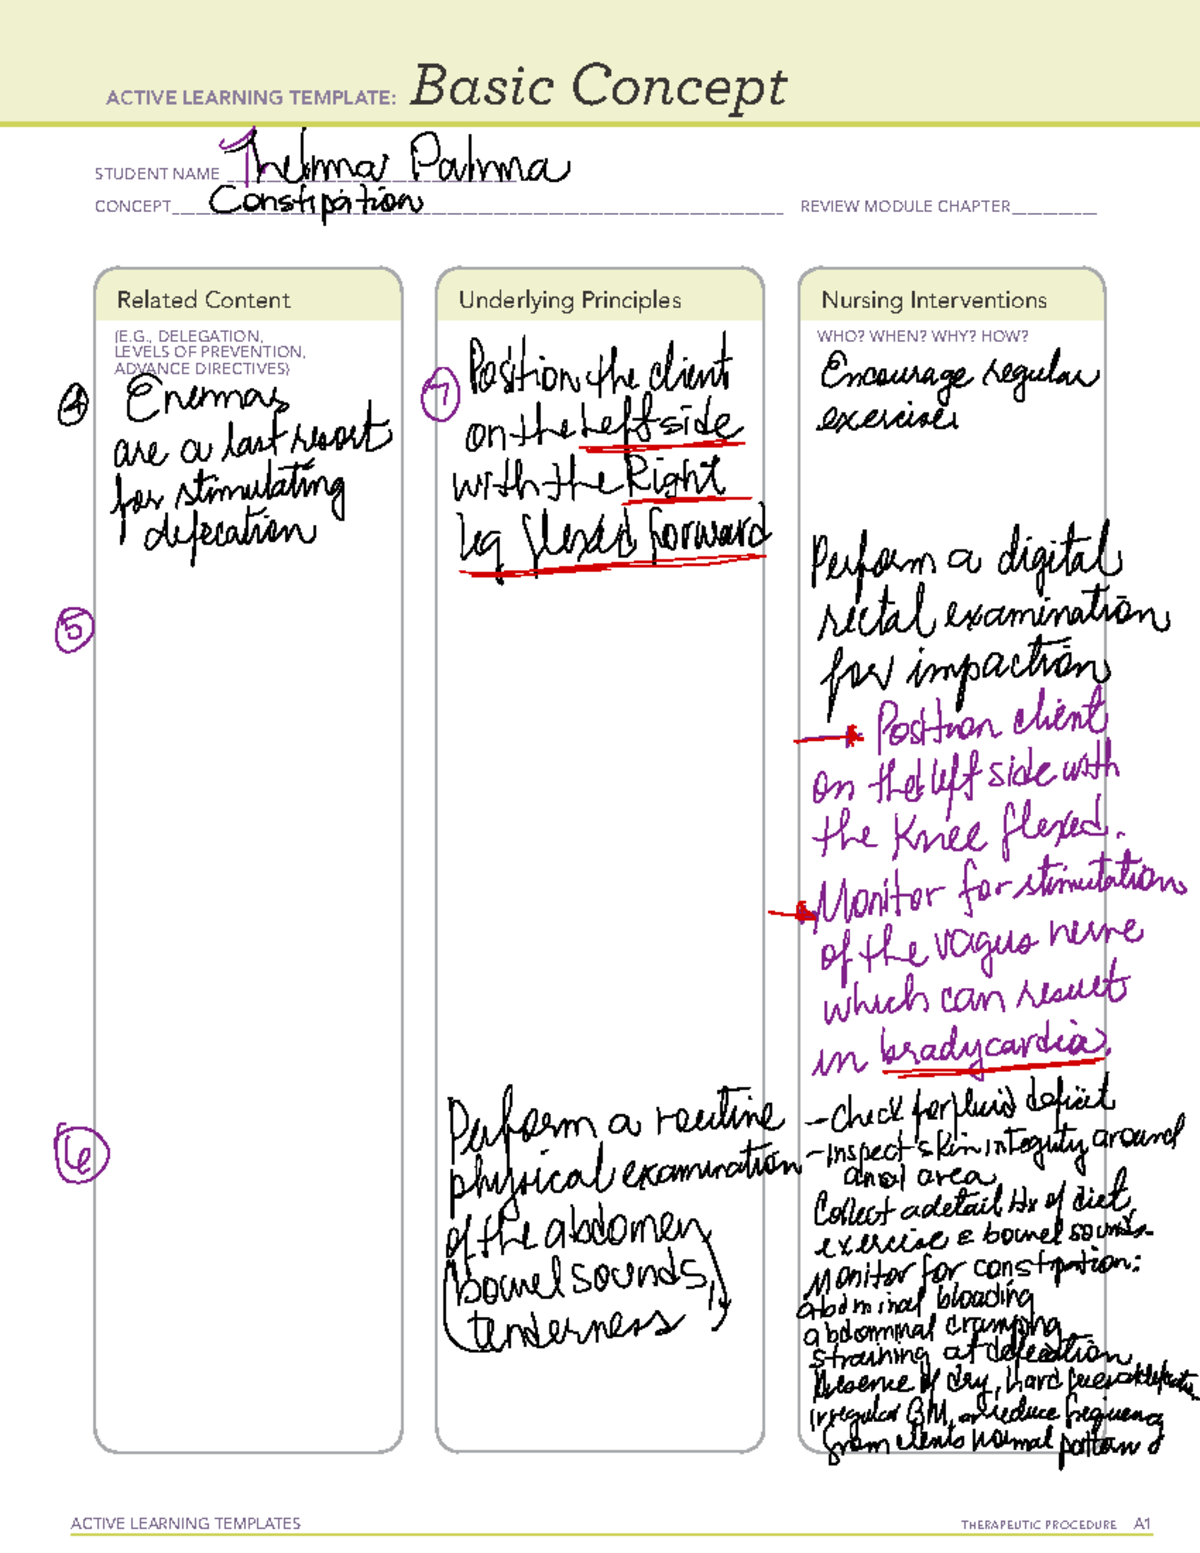 ACTIVE LEARNING TEMPLATE: Basic Concept
STUDENT NAME Thelma Palma
CONCEPT Constipation
REVIEW MODULE CHAPTER
Related Content
(E.G., DELEGATION,
LEVELS OF PREVENTION,
ADVANCE DIRECTIVES)
4 Enemas
are a last resort
for stimulating
defecation
5
6
Underlying Principles
7 Position the client
on the Left side
with the Right
leg flexed forward
Perform a routine
physical examination
of the abdomen
(bowel sounds,
tenderness)
Nursing Interventions
WHO? WHEN? WHY? HOW?
Encourage regular
exercise.
Perform a digital
rectal examination
for impaction
Position client
on the left side with
the Knee flexed.
Monitor for stimulation
of the vagus nerve
which can result
in bradycardia.
-Check for fluid deficit
-Inspect skin integrity around
anal area
Collect a detail Hx of diet,
exercise & bowel sounds.
Monitor for constipation:
abdminal bloading
abdominal cramping
straining at defecation
Presence of dry, hard feces at defecation
irregular BM, or reduce frequency
from clients normal pattern
ACTIVE LEARNING TEMPLATES
THERAPEUTIC PROCEDURE A1